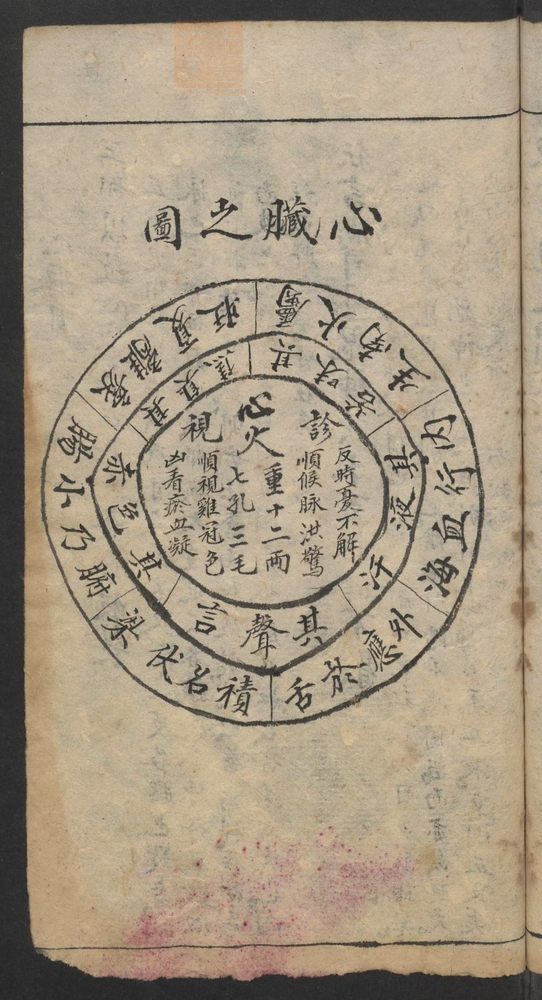 心臟之圖
屬火南生
內行血海
外應於舌
積名伏梁
腑乃小膓
旺夏
其味苦
其液汗
其聲言
其色赤
其臭焦
診
反時憂不解
順候脉洪驚
心火
重十二兩
七孔三毛
視
順視雞冠色
凶看瘀血凝